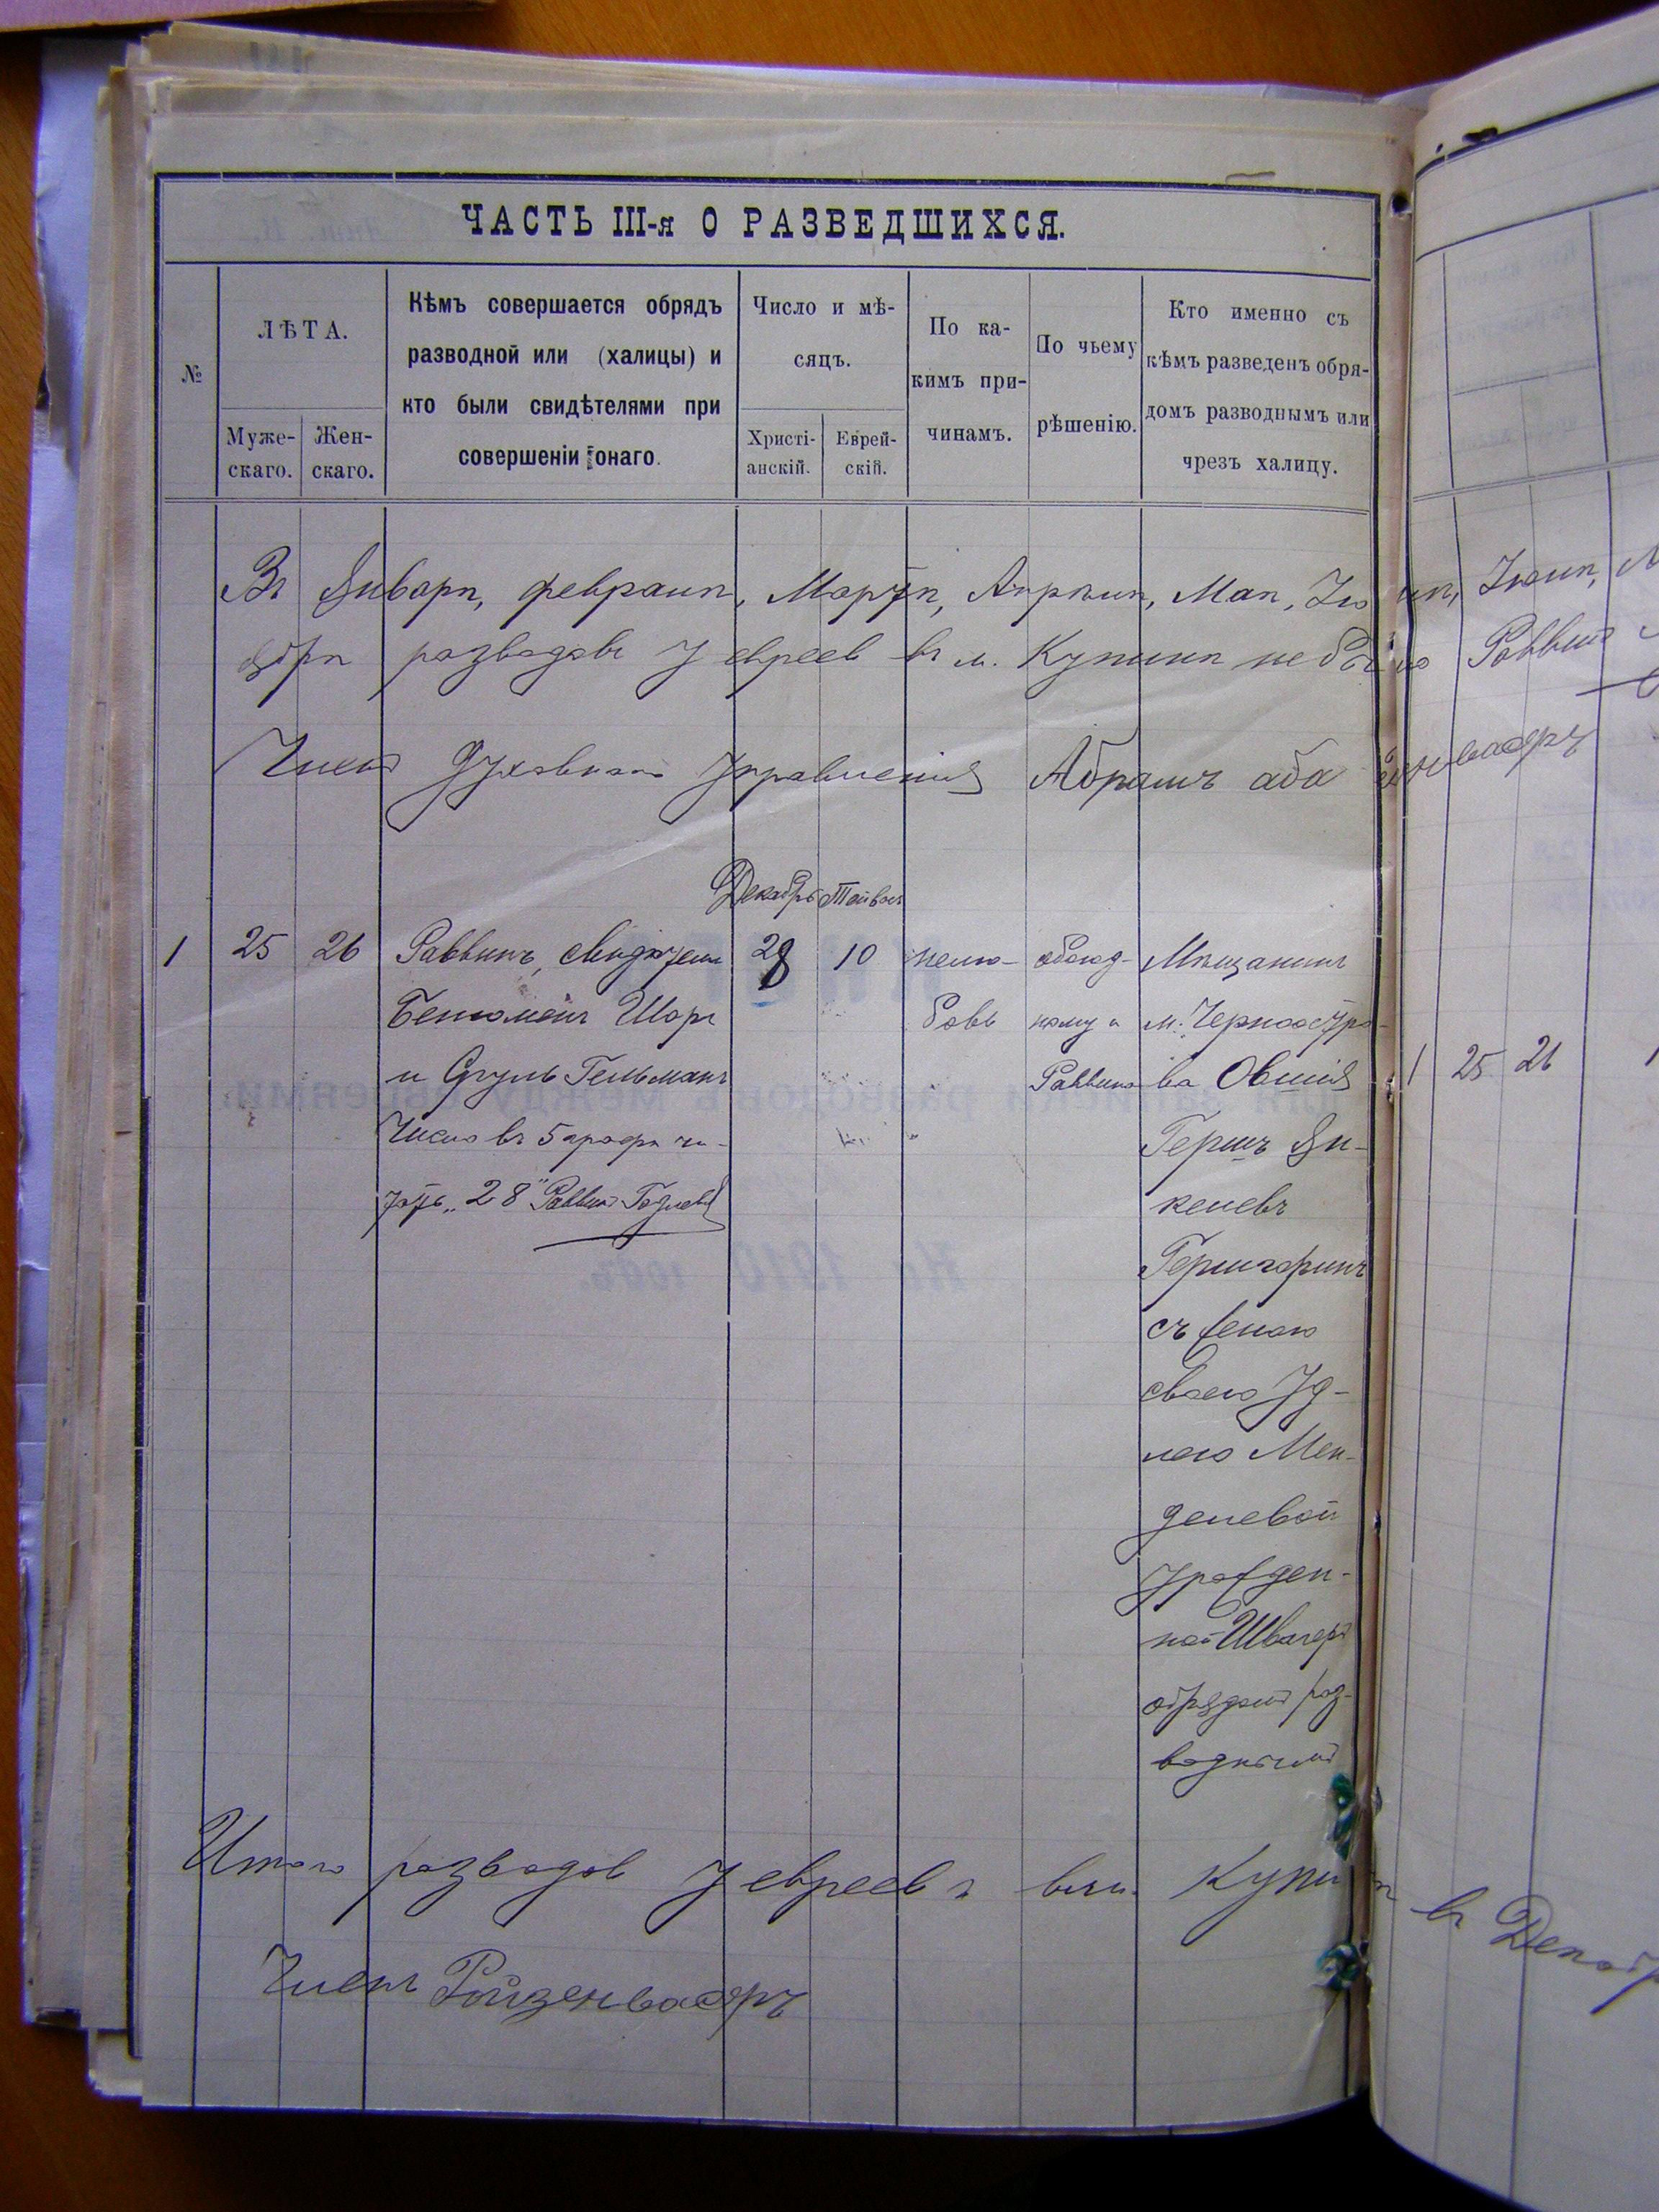 ЧАСТЬ III-я О РАЗВЕДШИХСЯ.
№
ЛѢТА.
Муже-
скаго.
Жен-
скаго.
Кѣмъ совершается обрядъ
разводной или (халицы) и
кто были свидѣтелями при
совершеніи онаго.
Число и мѣ-
сяцъ.
Христі-
анскій.
Еврей-
скій.
По ка-
кимъ при-
чинамъ.
По чьему
рѣшенію.
Кто именно съ
кѣмъ разведенъ обря-
домъ разводнымъ или
чрезъ халицу.
Въ Январѣ, февралѣ, Мартѣ, Апрѣлѣ, Маѣ, Іюнѣ, Іюлѣ,
разводовъ у евреев въ м. Купинѣ не было Раввинъ
Членъ Духовнаго Управленія Абрамъ аба
Декабрь
1 25 26
Раввинъ, свидѣтели
Бенюменъ Шоръ
и Сруль Гельманъ
Число въ 5 графѣ чи-
тать „28" Раввинъ
28
10
нелю-
бовь
обоюд-
ному и
Раввина
Мѣщанинъ
м. Черноостро-
ва Овшія
Гершъ Ян-
келевъ
Гершгоринъ
съ женою
своею Уд-
лею Мен-
делевой
урожден-
ной Швагеръ
обрядомъ раз-
воднымъ
1 25 26
Итого разводов у евреевъ въ м. Купинѣ въ
Членъ Ройзенвасеръ